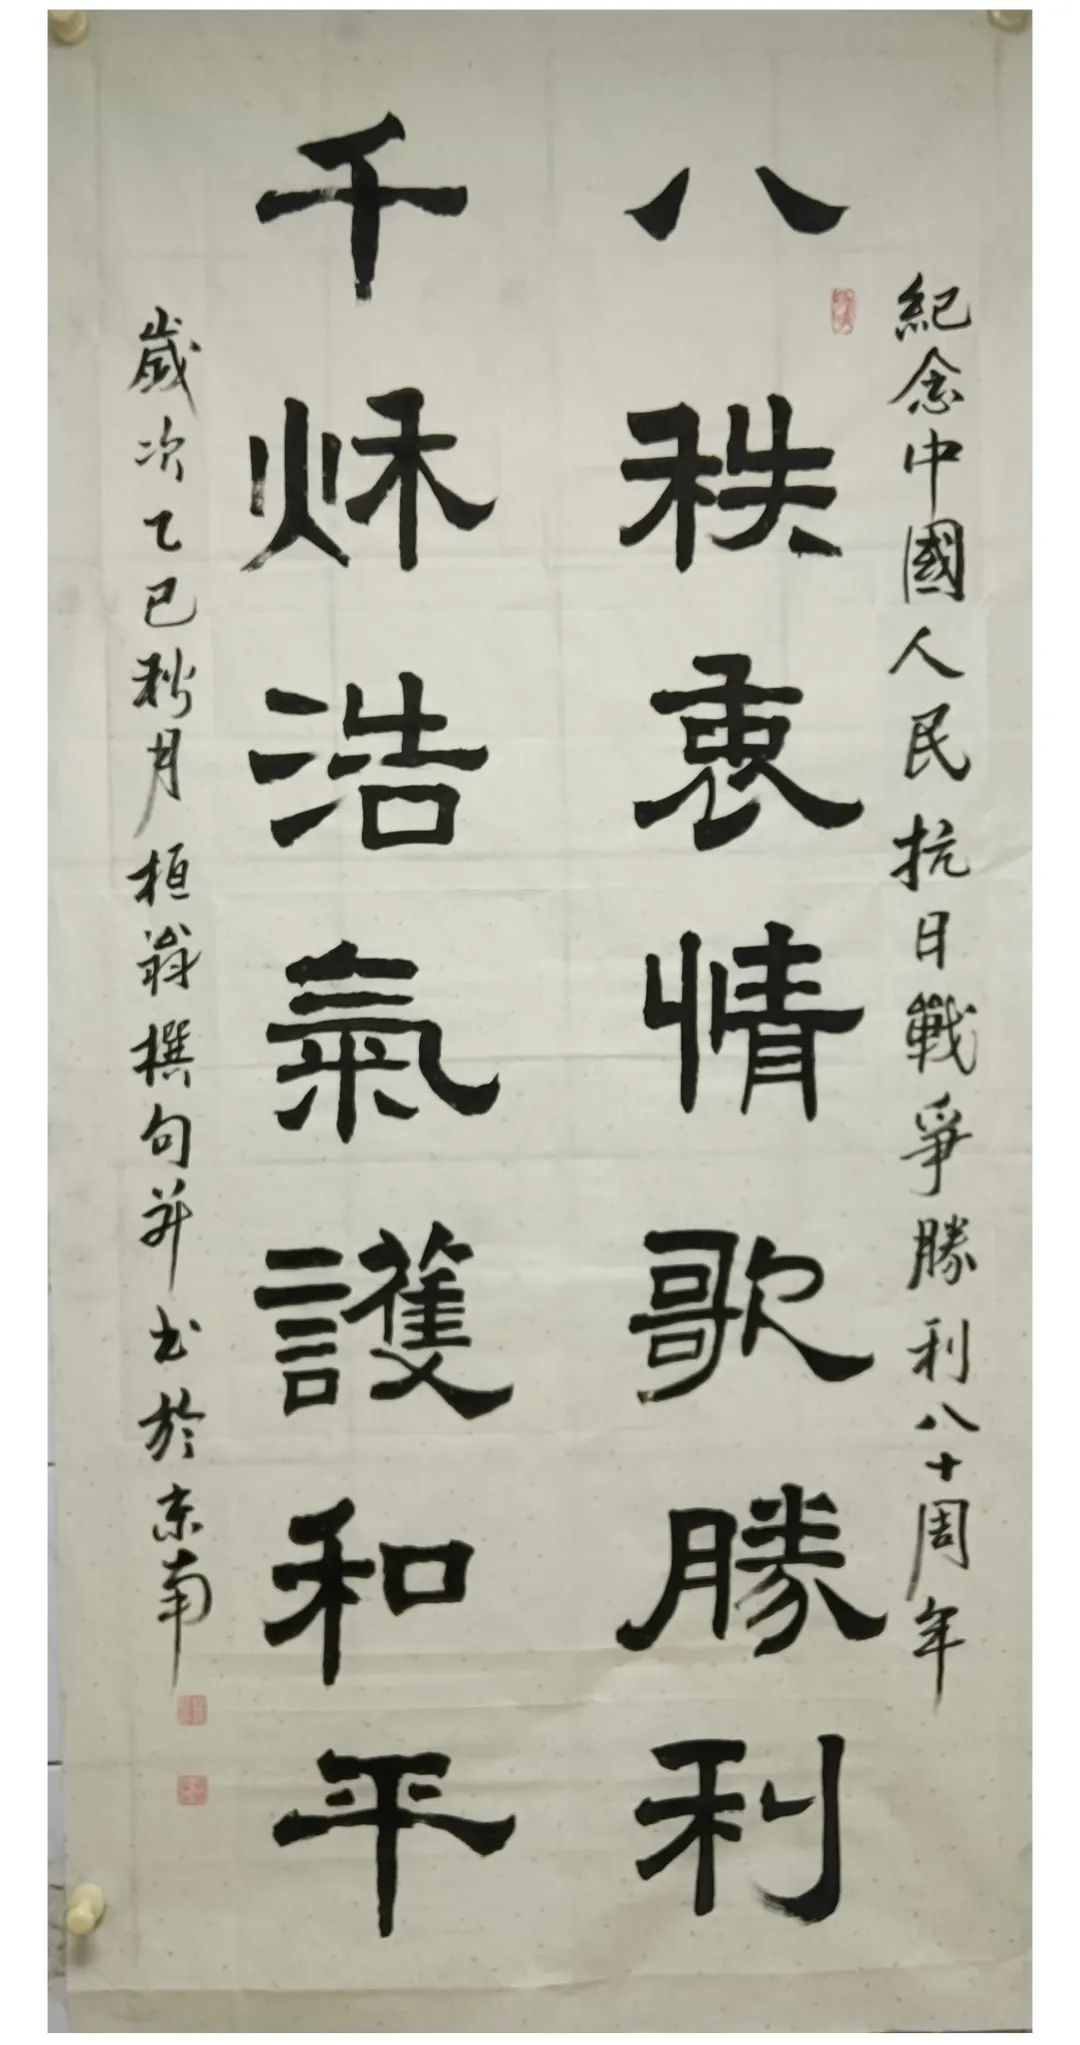 紀念中國人民抗日戰爭勝利八十周年
八秩衷情歌勝利
千秌浩氣護和平
歲次乙巳秋月桓翁撰句并书於京南